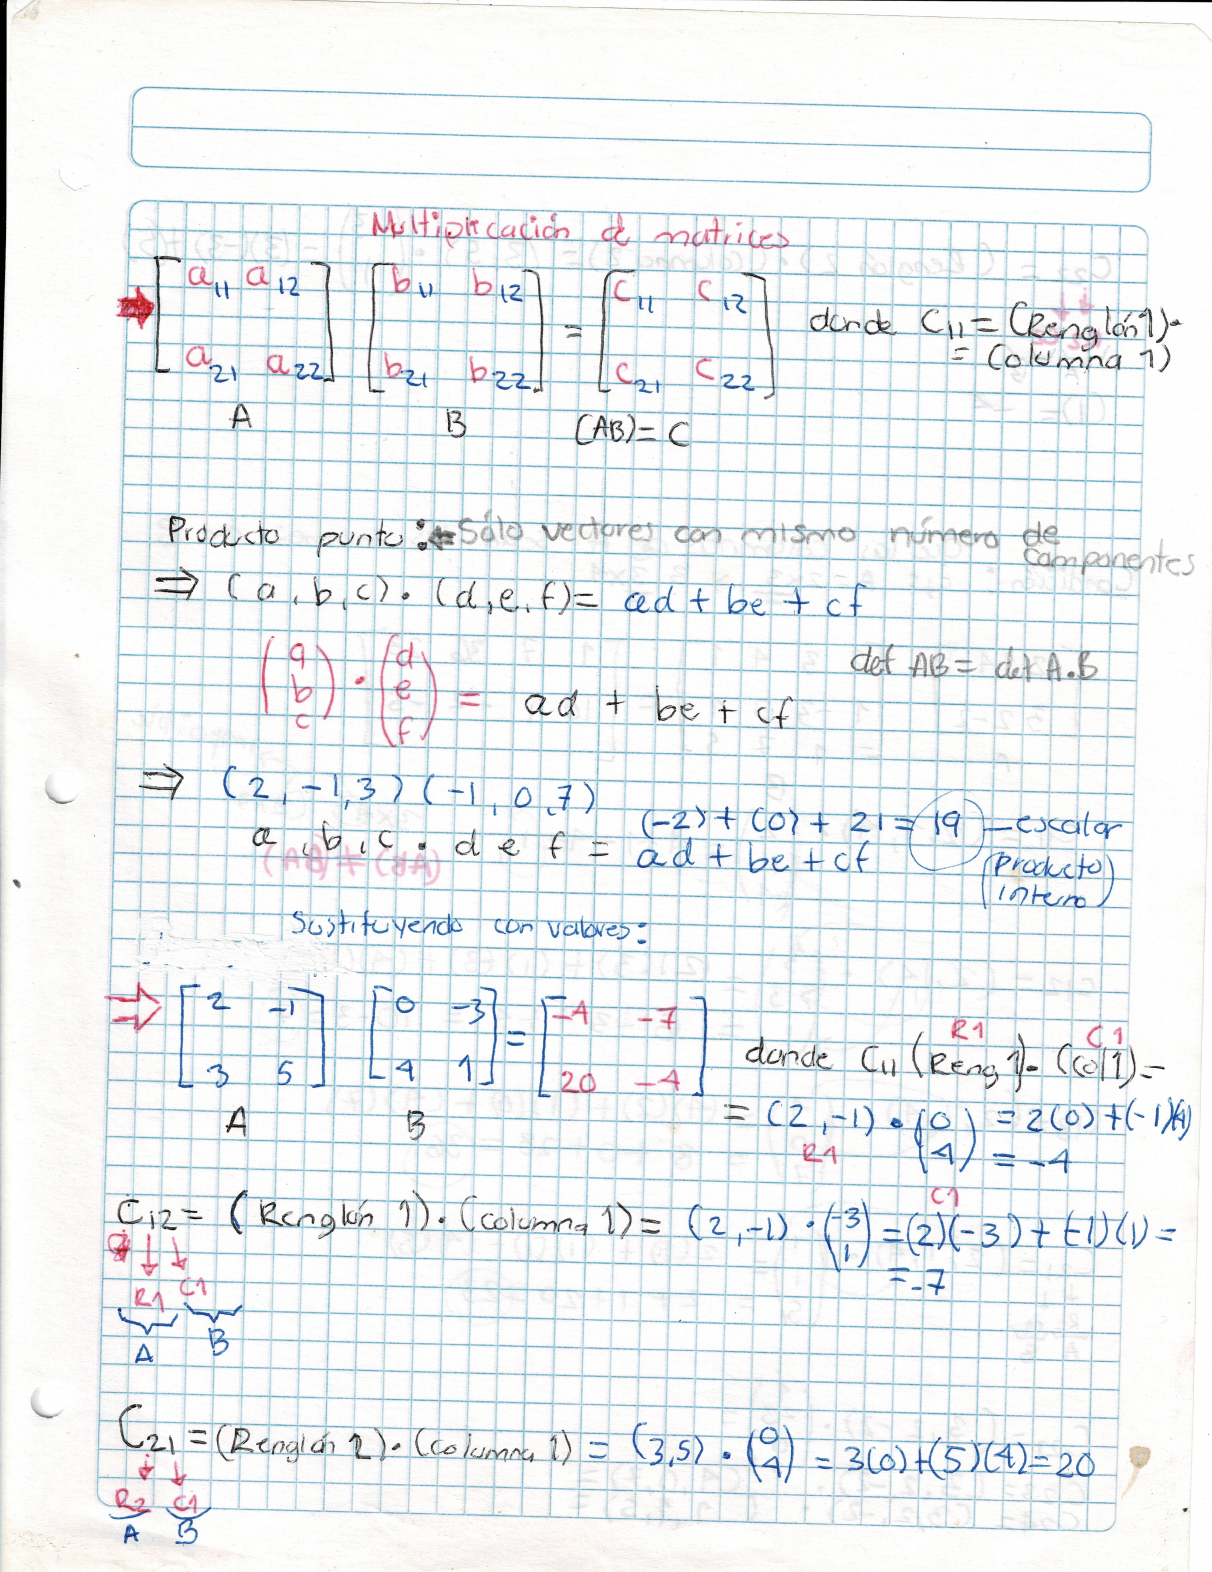 Multiplicación de matrices
[a11 a12 a21 a22] [b11 b12 b21 b22] = [c11 c12 c21 c22] donde C11 = (Renglón 1)·
= Columna 1)
A B (AB) = C
Producto punto: ← Sólo vectores con mismo número de
componentes
⇒ (a, b, c) · (d, e, f) = ad + be + cf
(a b c) · (d e f) = ad + be + cf
det AB = det A.B
⇒ (2, -1, 3) (-1, 0, 7)
(-2) + (0) + 21 = 19 — escalar
a, b, c · d e f = ad + be + cf
(Producto
interno)
Sustituyendo con valores:
⇒ [2 -1 3 5] [0 -3 4 1] = [-4 -7 20 -4] donde C11 (Reng 1) · (Col 1) =
R1 C1
A B
= (2, -1) · (0 4) = 2(0) + (-1)(4)
R1
= -4
C1
C12 = (Renglón 1) · (columna 1) = (2, -1) · (-3 1) = (2)(-3) + (-1)(1) =
= -7
R1 C1
A B
C21 = (Renglón 2) · (columna 1) = (3,5) · (0 4) = 3(0) + (5)(4) = 20
R2 C1
A B